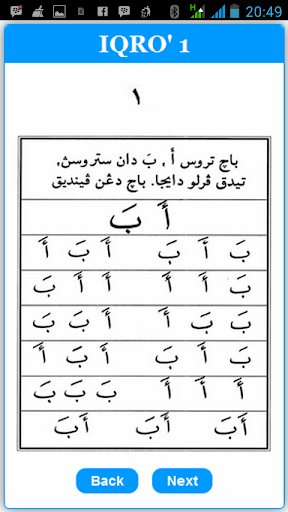 20:49
IQRO' 1
١
باچ تروس أَ , بَ دان ستروسڽ,
تيدق ڤرلو دايجا. باچ دڠن ڤينديق
أَ بَ
بَ أَ بَ أَ بَ أَ
بَ أَ أَ أَ أَ بَ
بَ بَ أَ أَ بَ بَ
بَ أَ بَ أَ بَ أَ
أَ أَ أَ بَ بَ بَ
أَبَ أَبَ أَبَ
Back Next